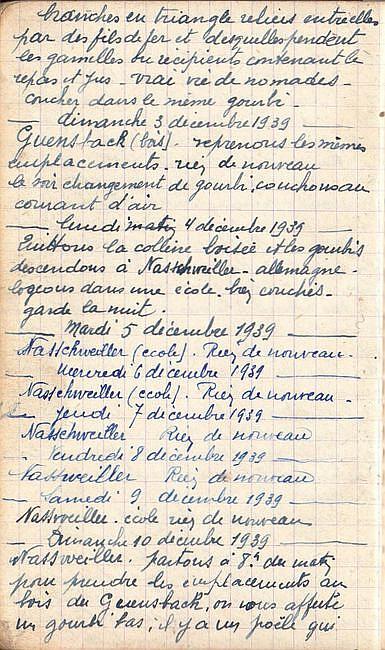 branches en triangle reliées entre elles
par des fils de fer et desquelles pendent
les gamelles ou récipients contenant le
repas et jus - vraie vie de nomades -
coucher dans le même gourbi -
— dimanche 3 decembre 1939 —
Guensback (bois). reprenons les mêmes
emplacements. rien de nouveau
le soir changement de gourbi. couchons au
courant d'air
— lundi matin 4 décembre 1939 —
Quittons la colline boisée et les gourbis
descendons à Nasschweiller - allemagne -
logeons dans une école. bien couchés -
garde la nuit.
— Mardi 5 décembre 1939 —
Nasschweiller (ecole). Rien de nouveau -
— mercredi 6 decembre 1939 —
Nasschweiller (ecole). Rien de nouveau -
— jeudi 7 décembre 1939 —
Nasschweiller Rien de nouveau
— Vendredi 8 décembre 1939 —
Nassweiller Rien de nouveau
— Samedi 9 décembre 1939 —
Nassveiller. école rien de nouveau
— Dimanche 10 décembre 1939 —
Nassveiller. partons à 8h du matin
pour prendre les emplacements au
bois du Guensback, on nous affecte
un gourbi bas, il y a un poële qui